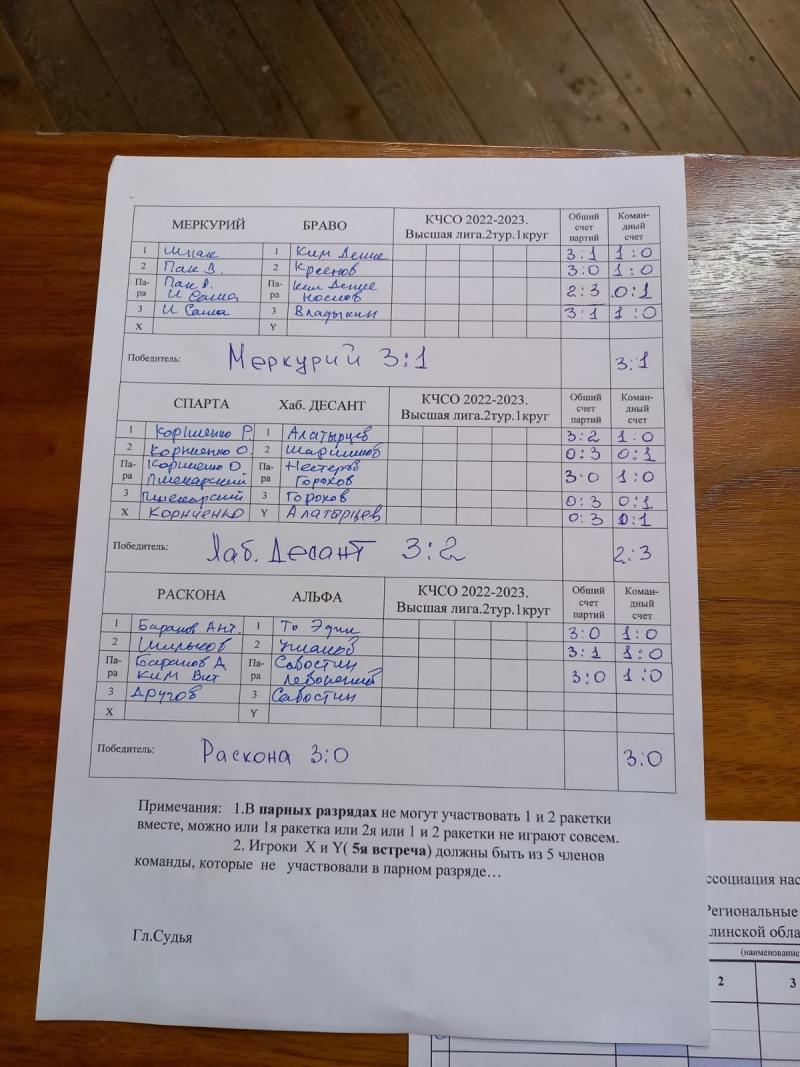 МЕРКУРИЙ БРАВО КЧСО 2022-2023. Высшая лига.2тур.1круг Общий счет партий Коман-дный счет
1 Шпак 1 Ким Денис 3:1 1:0
2 Пак В. 2 3:0 1:0
Па-ра Пак В. И Саша Па-ра Ким Денис Носков 2:3 0:1
3 И Саша 3 Владыкин 3:1 1:0
X Y
Победитель: Меркурий 3:1 3:1
СПАРТА Хаб. ДЕСАНТ КЧСО 2022-2023. Высшая лига.2тур.1круг Общий счет партий Коман-дный счет
1 Корниенко Р. 1 Алатырцев 3:2 1:0
2 Корниенко О. 2 0:3 0:1
Па-ра Корниенко О. Пшекарский Па-ра Нестеров Горохов 3:0 1:0
3 Пшекарский 3 Горохов 0:3 0:1
X Корниенко Y Алатырцев 0:3 0:1
Победитель: Хаб. Десант 3:2 2:3
РАСКОНА АЛЬФА КЧСО 2022-2023. Высшая лига.2тур.1круг Общий счет партий Коман-дный счет
1 Баранов Ант. 1 То Эдик 3:0 1:0
2 Шильков 2 3:1 1:0
Па-ра Баранов А Ким Вит Па-ра Савостин 3:0 1:0
3 Другов 3 Савостин
X Y
Победитель: Раскона 3:0 3:0
Примечания: 1.В парных разрядах не могут участвовать 1 и 2 ракетки
вместе, можно или 1я ракетка или 2я или 1 и 2 ракетки не играют совсем.
2. Игроки X и Y( 5я встреча) должны быть из 5 членов
команды, которые не участвовали в парном разряде…
Гл.Судья
ссоциация нас
Региональные
линской обла
(наименование
2 3